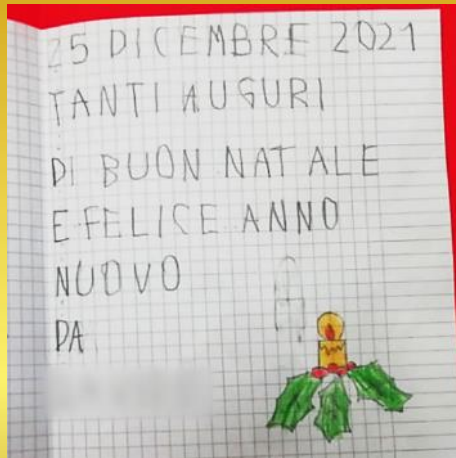 25 DICEMBRE 2021
TANTI AUGURI
DI BUON NATALE
E FELICE ANNO
NUOVO
DA